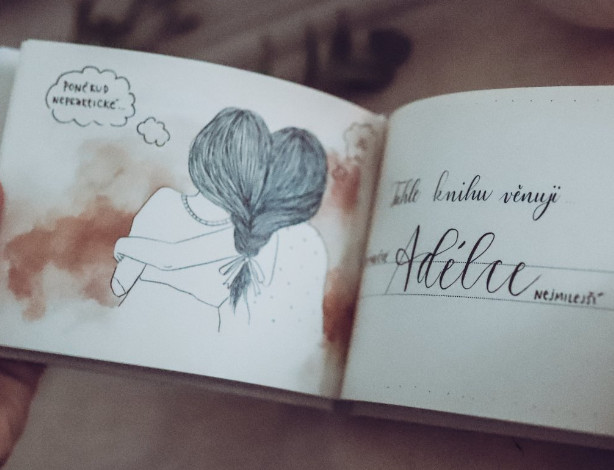 PONĚKUD
NEPRAKTICKÉ...
Tuhle knihu věnuji
Adélce
NEJMILEJŠÍ